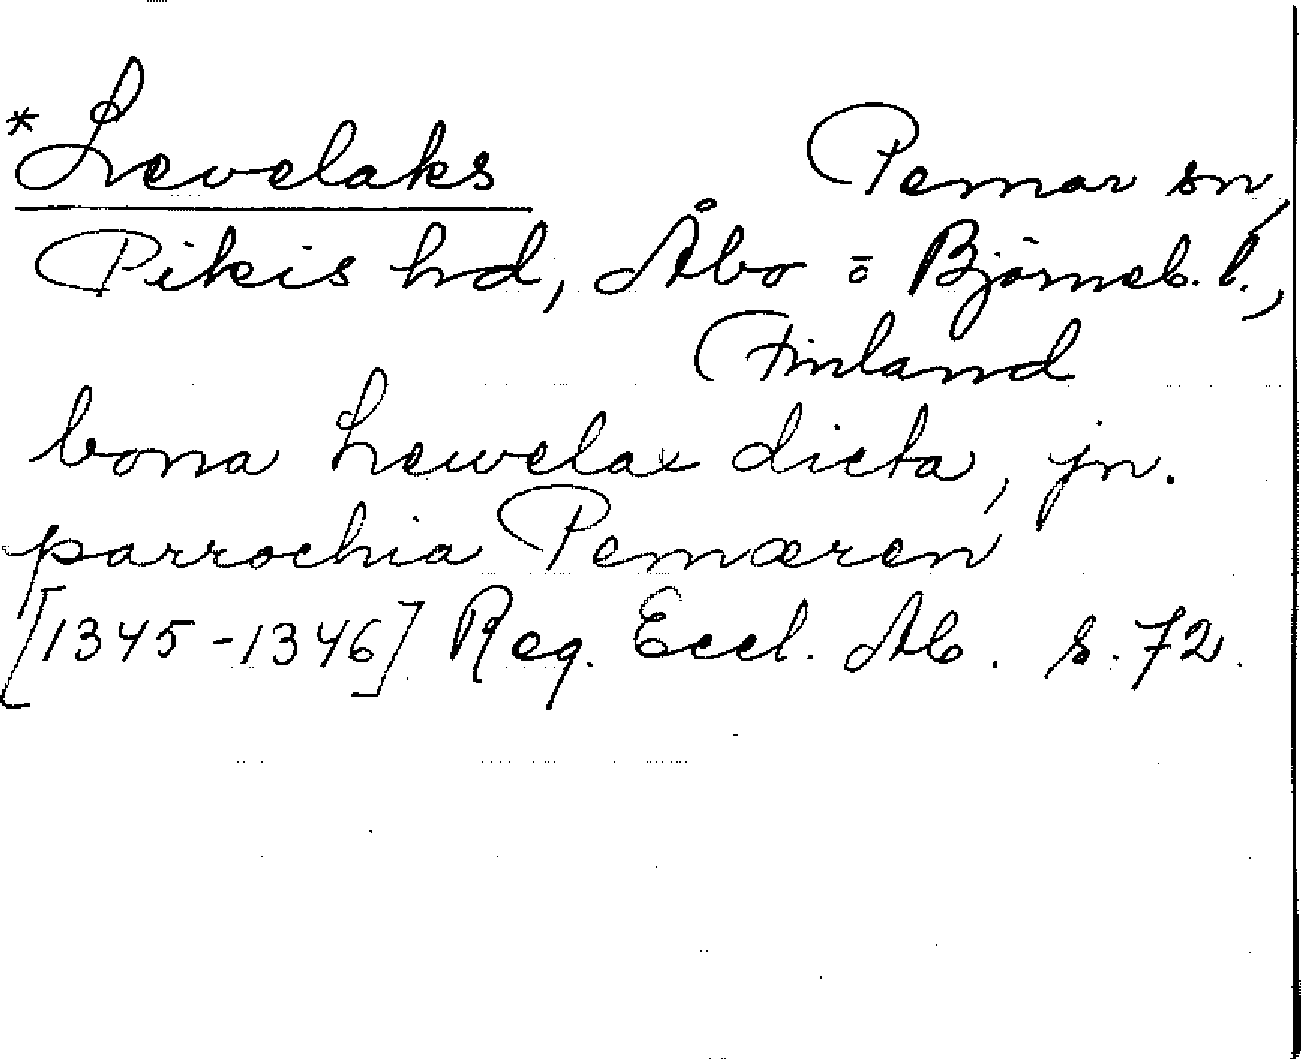 *Levelaks Pemar sn,
Pikis hd, Åbo = Björneb. l.,
Finland
bona Lewelax dicta, jn.
parrochia Pemæren
[1345-1346] Reg. Eccl. Ab. s. 72.